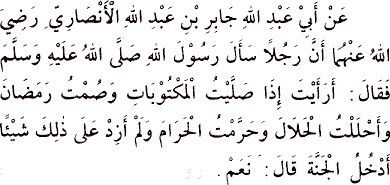 عَنْ أَبِيْ عَبْدِ اللهِ جَابِرِ بْنِ عَبْدِ اللهِ الْأَنْصَارِيِّ رَضِيَ
اللهُ عَنْهُمَا أَنَّ رَجُلًا سَأَلَ رَسُوْلَ اللهِ صَلَّى اللهُ عَلَيْهِ وَسَلَّمَ
فَقَالَ: أَرَأَيْتَ إِذَا صَلَّيْتُ الْمَكْتُوْبَاتِ وَصُمْتُ رَمَضَانَ
وَأَحْلَلْتُ الْحَلَالَ وَحَرَّمْتُ الْحَرَامَ وَلَمْ أَزِدْ عَلَى ذٰلِكَ شَيْئًا
أَدْخُلُ الْجَنَّةَ قَالَ: نَعَمْ.